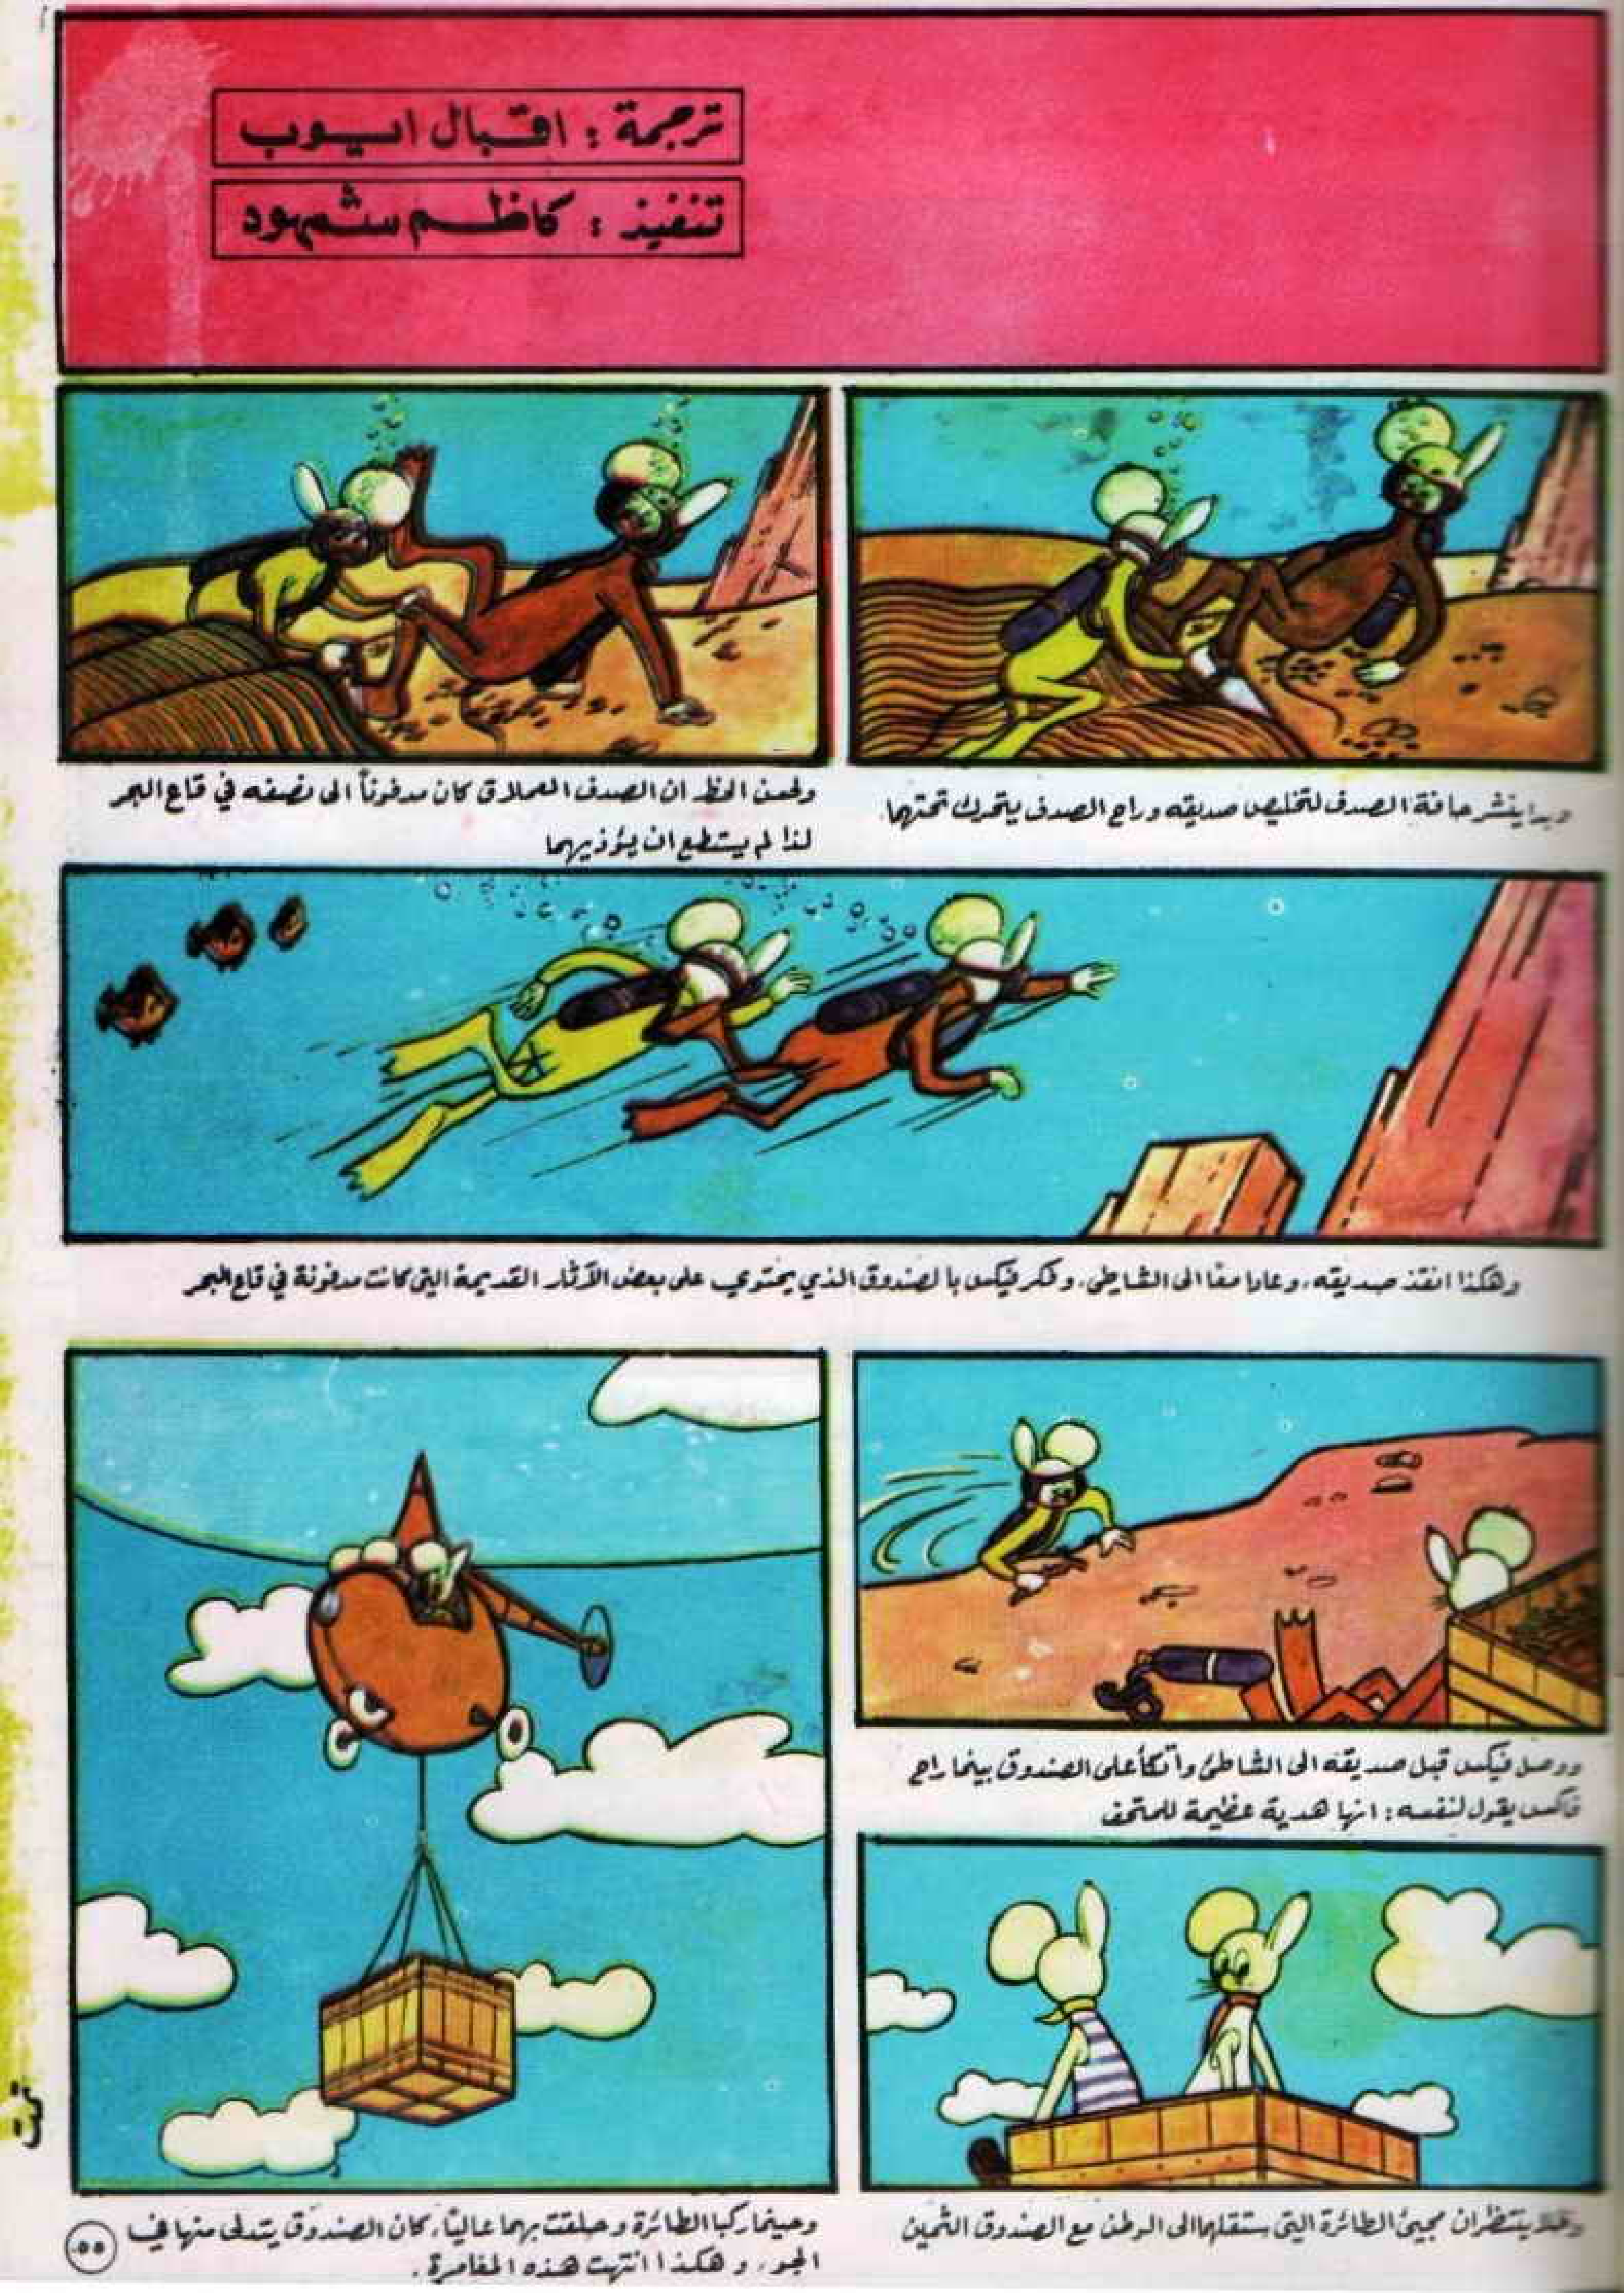 ترجمة : اقبال ايوب
تنفيذ : كاظم شمهود
وبدا ينشر حافة الصدف لتخليص صديقه وراح الصدف يتحرك تحتهما.
ولحسن الحظ ان الصدف العملاق كان مدفوناً الى نصفه في قاع البحر
لذا لم يستطع ان يؤذيهما
وهكذا انقذ صديقه، وعادا معا الى الشاطئ، وفكر فيكس بالصندوق الذي يحتوي على بعض الآثار القديمة التي كانت مدفونة في قاع البحر
ووصل فيكس قبل صديقه الى الشاطئ واتكأ على الصندوق بينما راح
فاكس يقول لنفسه : انها هدية عظيمة للمتحف
وظلا ينتظران مجيئ الطائرة التي ستقلهما الى الوطن مع الصندوق الثمين
وحينما ركبا الطائرة وحلقت بهما عالياً، كان الصندوق يتدلى منها في
الجو، وهكذا انتهت هذه المغامرة.
٥٥